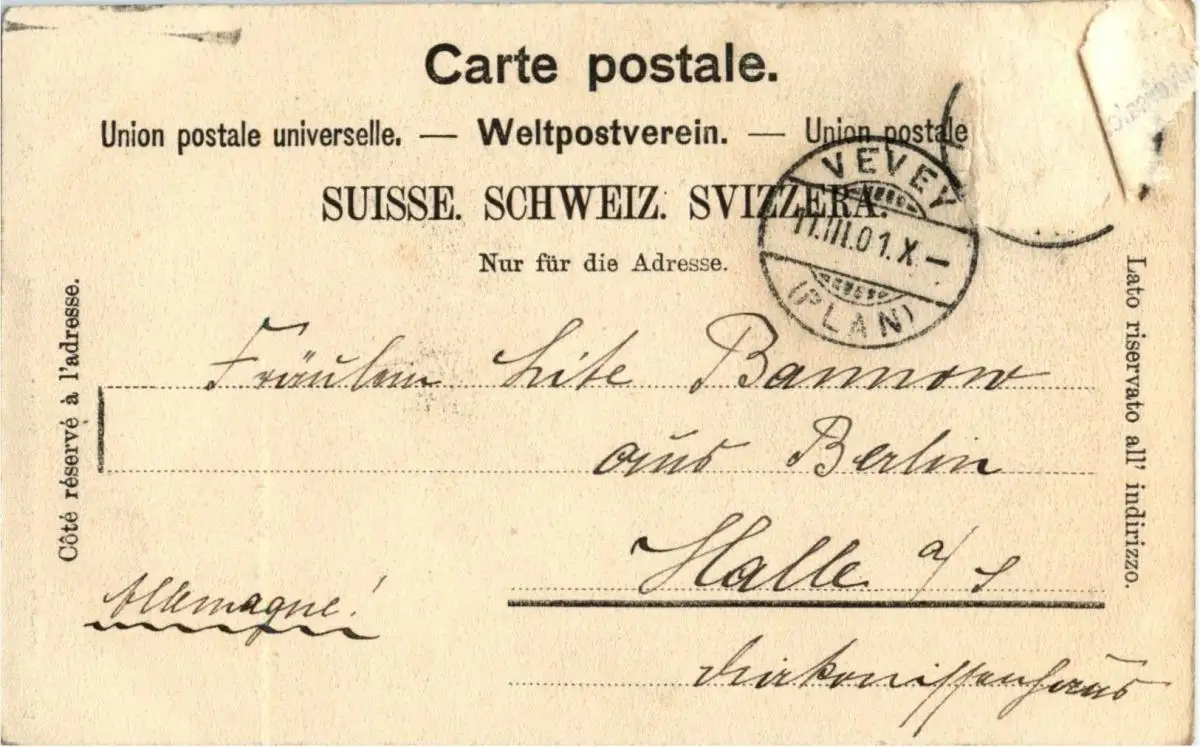 Carte postale.
Union postale universelle. — Weltpostverein. — Union postale
SUISSE. SCHWEIZ. SVIZZERA.
Nur für die Adresse.
VEVEY
11.III.01.X.—
(PLAN)
Côté réservé à l'adresse.
Lato riservato all' indirizzo.
Fräulein Lite Bannow
aus Berlin
Halle a/S
Allemagne!
Diakonissenhaus